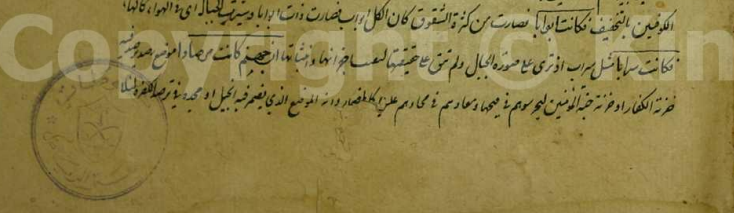 الكوفيين بالتخفيف فكانت ابوابا فصارت من كثرة الشقوق كان الكل ابواب فصارت ذات ابواب وسيرت الجبال اي في الهواء كالهباء
فكانت سرابا مثل سراب اذ ترى على صورة الجبال ولم تبق على حقيقتها لتفتت اجزائها وانبثاثها ان جهنم كانت مرصادا موضع رصد يرصد فيه
خزنة الكفار او خزنة الجنة المؤمنين ليحرسوهم من فيحها في مجازهم عليها كالمضمار فانه الموضع الذي يضمر فيه الخيل او مجدة في ترصد الكفرة لئلا
Copyright